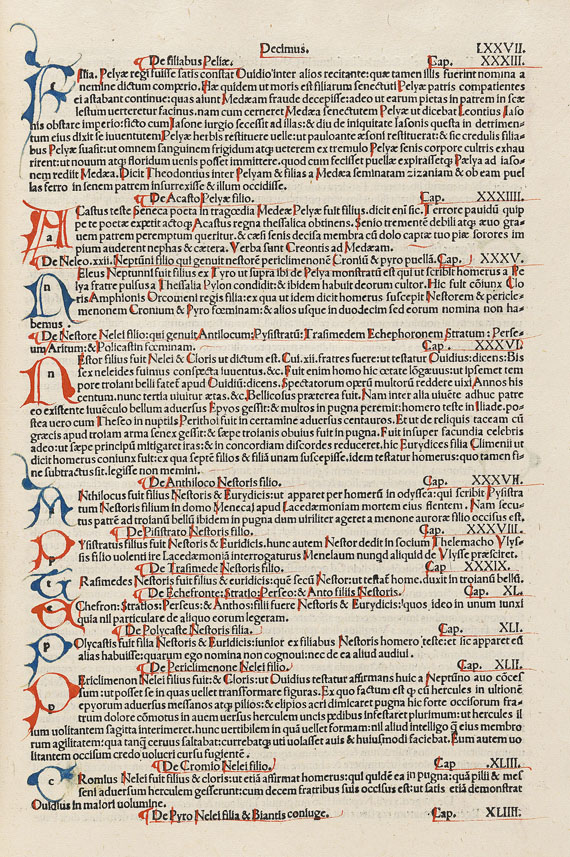 Decimus. LXXVII.
De filiabus Peliæ. Cap. XXXIII.
Filia. Pelyæ regi fuisse satis constat Ouidio inter alios recitante: quæ tamen illis fuerint nomina a
nemine dictum comperio. Hæ quidem ut moris est filiarum senectuti Pelyæ patris compatientes
ei astabant continue: quas aiunt Medæam fraude decepisse: adeo ut earum pietas in patrem in scæ
lestum uerteretur facinus. nam cum cerneret Medæa senectutem Pelyæ ut dicebat Leontius Iaso
nis obstare imperio: ficto cum Iasone iurgio secessit ad illas: & diu de iniquitate Iasonis questa in detrimen-
tum eius dixit se iuuentutem Pelyæ herbis restituere uelle: ut paulo ante æsoni restituerat: & sic credulis filia-
bus Pelyæ suasit: ut omnem sanguinem frigidum atq; ueterem ex tremulo Pelyæ senis corpore cultris exhau
rirent: ut nouum atq; floridum uenis posset immittere. quod cum fecisset puellæ expirassetq; Pælya ad iaso-
nem rediit Medæa. Dicit Theodontius inter Pelyam & filias a Medæa seminatam zizaniam & ob eam puel
las ferro in senem patrem insurrexisse & illum occidisse.
De Acasto Pelyæ filio. Cap. XXXIIII.
ACastus teste seneca poeta in tragœdia Medeæ Pelyæ fuit filius. dicit eni sic. Terrore pauidū quip
pe te poetæ expetit actoq; Acastus regna thessalica obtinens. Senio tremente debili atq; æuo gra-
uem patrem peremptum queritur. & cæsi senis decisa membra cū dolo captæ tuo piæ sorores im
pium auderent nephas & cætera. Verba sunt Creontis ad Medæam.
De Neleo. xxii. Neptūni filio qui genuit nestorē periclimenonē Croniū & pyro puellā. Cap. XXXV.
NEleus Neptunni fuit filius ex Tyro ut supra ibi de Pelya monstratū est qui ut scribit homerus a Pe
lya fratre pulsus a Thessalia Pylon condidit: & ibidem habuit deorum cultor. Hic fuit cōiunx Clo
ris Amphionis Orcomeni regis filia: ex qua ut idem dicit homerus suscepit Nestorem & pericle-
menonem Cronium & Pyro fœminam: & alios usque in duodecim sed eorum nomina non ha-
bemus.
De Nestore Nelei filio: qui genuit Antilocum: Pysistratū: Trasimedem Echephronem Stratum: Perse-
um Aritum: & Policastin fœminam. Cap. XXXVI.
NEstor filius fuit Nelei & Cloris ut dictum est. Cui. xii. fratres fuere: ut testatur Ouidius: dicens: Bis
sex neleides fuimus conspecta iuuentus. &c. Fuit enim homo hic œtate lōgæuus: ut ipsemet tem
pore troiani belli fatet apud Ouidiū: dicens. Spectatorum operū multorū reddere uixi Annos his
centum. nunc tertia uiuitur ætas. &c. Bellicosus præterea fuit. Nam inter alia uiuēte adhuc patre
eo existente iuuēculo bellum aduersus Epyos gessit: & multos in pugna peremit: homero teste in Iliade. po-
stea uero cum Theseo in nuptiis Perithoi fuit in certamine aduersus centauros. Et ut de reliquis taceam cū
græcis apud troiam arma senex gessit: & sæpe troianis obuius fuit in pugna. Fuit insuper facundia celebris
adeo: ut sæpe principū mitigaret iras: & in concordiam discordes reduceret. hic Eurydices filia Climenii ut
dicit homerus coniunx fuit: ex qua septē filios & filiā unam suscepisse. idem testatur homerus: quo tamen fi-
ne subtractus sit. legisse non memini.
De Anthiloco Nestoris filio. Cap. XXXVII.
ANthilocus fuit filius Nestoris & Eurydicis: ut apparet per homerū in odyssea: qui scribit Pysistra
tum Nestoris filium in domo Menecaj apud Lacedæmoniam mortem eius flentem. Nam secu-
tus patrē ad troianū belliū ibidem in pugna dum uiriliter ageret a menone auroræ filio occisus est.
De Pisistrato Nestoris filio. Cap. XXXVIII.
PYsistratus filius fuit Nestoris & Euridicis. hunc autem Nestor dedit in socium Thelemacho Ulys-
sis filio uolenti ire Lacedæmoniā interrogaturus Menelaum nunqd aliquid de Vlysse præsciret.
De Trasimede Nestoris filio. Cap. XXXIX.
TRasimedes Nestoris fuit filius & euridicis: quē secū Nestor: ut testat hom̄. duxit in troianū bellū.
De Echefronte: Stratio: Perseo: & Anto filiis Nestoris. Cap. XL.
EChefron: Stratios: Perseus: & Anthos: filii fuere Nestoris & Eurydicis: quos ideo in unum iunxi
quia nil particulare de aliquo eorum legeram.
De Polycaste Nestoris filia. Cap. XLI.
POlycastis fuit filia Nestoris & Euridicis: iunior ex filiabus Nestoris homero teste: et sic apparet eū
alias habuisse: quarum ego nomina non cognoui: nec de ea aliud audiui.
De Periclimenone Nelei filio. Cap. XLII.
PEriclimenon Nelei filius fuit: & Cloris: ut Ouidius testatur affirmans huic a Neptūno auo cōces
sum: ut posset se in quas uellet transformare figuras. Ex quo factum est q̄ cū hercules in ultionē
epyorum aduersus messanos atq; pilios: & elipios acri dimicaret pugna hic forte occisorum fra-
trum dolore cōmotus in auem uersus herculem uncis pedibus infestaret plurimum: ut hercules il
lum uolitantem sagitta interimeret. hunc uertibilem in quā uellet formam: nil aliud intelligo q̄ eius membro
rum agilitatem: qua tanq̄ ceruus saltabat: currebatq; uti uolasset auis & huiusmodi faciebat. Eum autem uo
litantem occisum credo uolucri cursu fugientē.
De Cromio Nelei filio. Cap .XLIII.
CRomius Nelei fuit filius & cloris: ut etiā affirmat homerus: qui quidē ea in pugna: quā pilii & mes
seni aduersum herculem gesserunt: cum decem fratribus suis occisus est: ut satis etiā demonstrat
Ouidius in maiori uolumine.
De Pyro Nelei filia & Biantis coniuge. Cap. XLIIII.